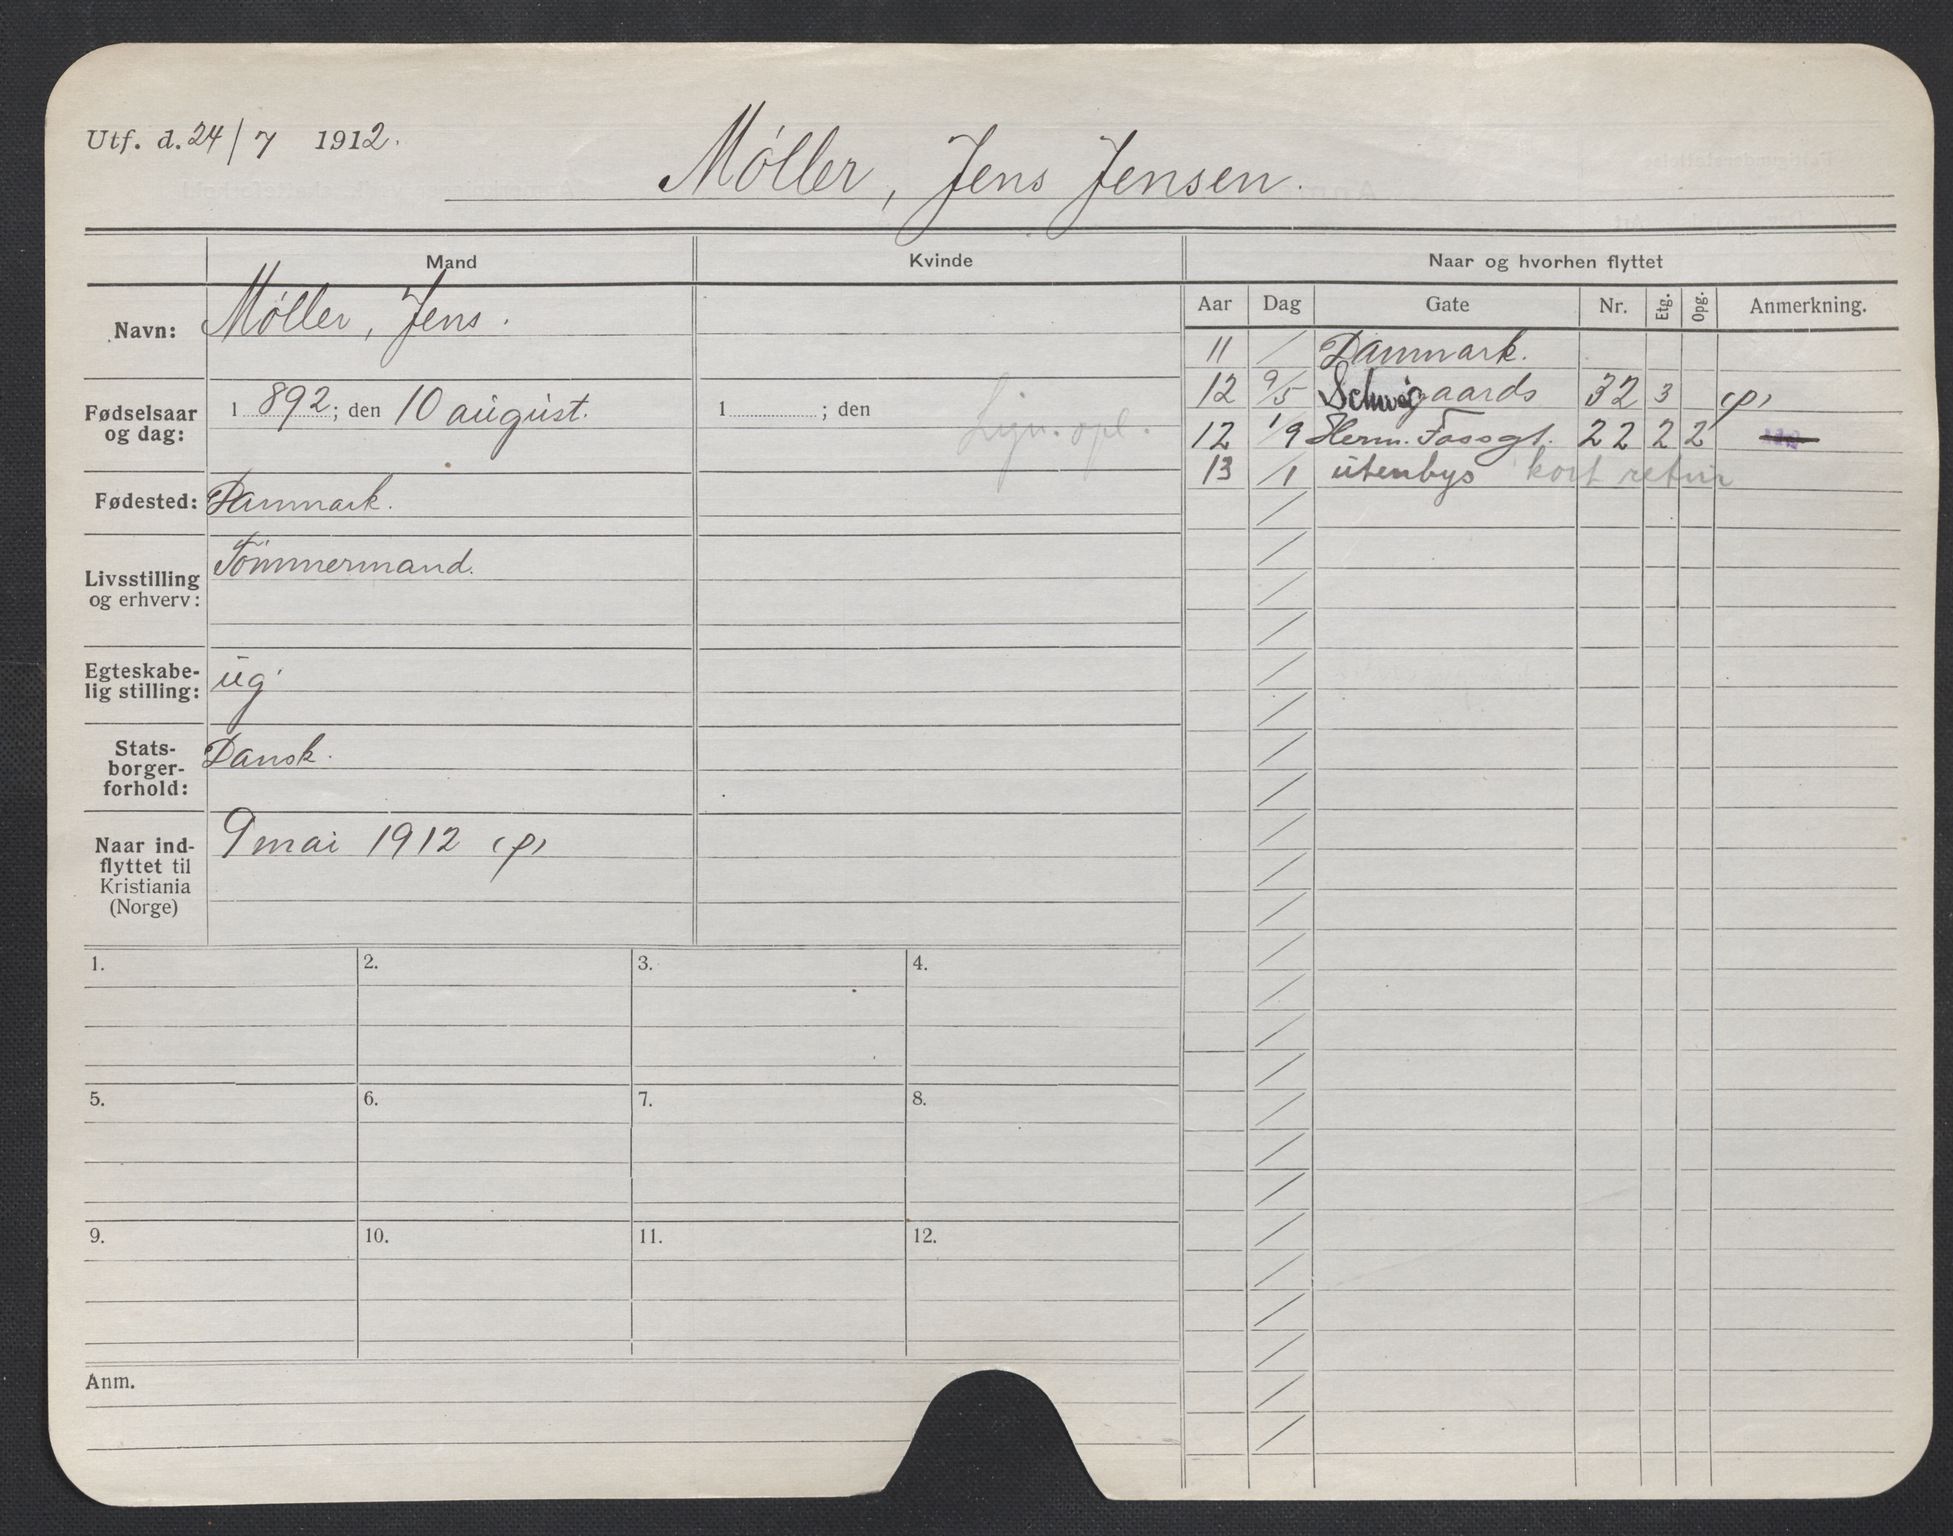 Utf. d. 24/7 1912.
Møller, Jens Jensen.
Mand Kvinde Naar og hvorhen flyttet
Aar Dag Gate Nr. Etg. Opg. Anmerkning.
Navn: Møller, Jens.
Fødselsaar og dag: 1892; den 10 august. 1 ; den
Lign. opl.
Fødested: Danmark.
Livsstilling og erhverv: Tömmermand.
Egteskabe-
lig stilling: ug
Stats-
borger-
forhold: Dansk.
Naar ind-
flyttet til
Kristiania
(Norge) 9 mai 1912 (p)
11 / Danmark.
12 9/5 Schwegaards 32 3 (p)
12 1/9 Herm. Fossgt. 22 2 2
13 /1 utenbys kort retur
1. 2. 3. 4.
5. 6. 7. 8.
9. 10. 11. 12.
Anm.